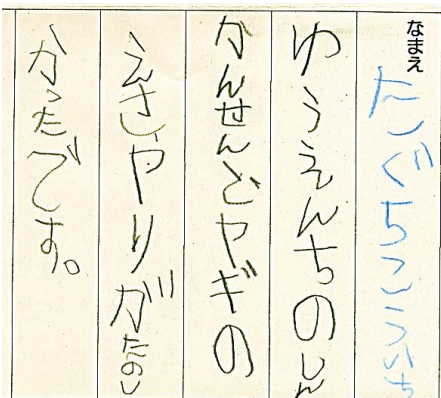 なまえ
たぐちこういち
ゆうえんちのしん
かんせんとヤギの
えさやりがたのし
かったです。